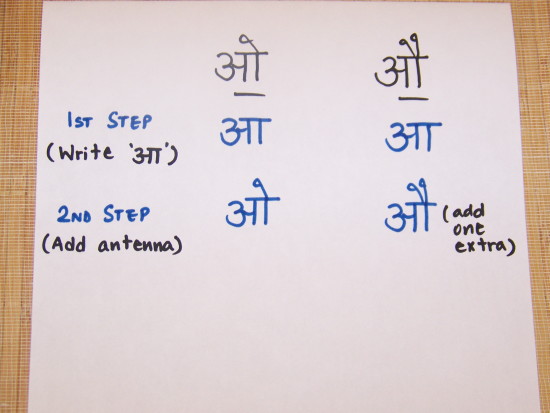 ओ औ
1ST STEP आ आ
(Write 'आ')
2ND STEP ओ औ (add
(Add antenna) one
extra)